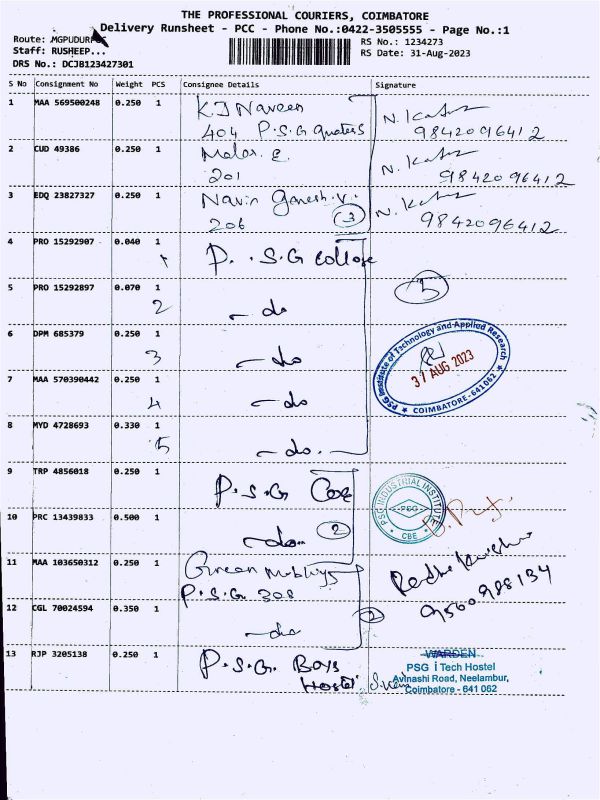 THE PROFESSIONAL COURIERS, COIMBATORE
Delivery Runsheet - PCC - Phone No.:0422-3505555 - Page No.:1
Route: MGPUDUR
Staff: RUSHEEP...
DRS No.: DCJ8123427301
RS No.: 1234273
RS Date: 31-Aug-2023
S No Consignment No Weight PCS Consignee Details Signature
1 MAA 569500248 0.250 1 KJ Naveen
404 P.S.G quaters
9842096412
2 CUD 49386 0.250 1 Malar. E.
201
9842096412
3 EDQ 23827327 0.250 1 Navin Ganesh.V.
206 3
9842096412
4 PRO 15292907 0.040 1 P. S.G College
1
5 PRO 15292897 0.070 1 5
2 - do
6 DPM 685379 0.250 1
3 - do
PSG Institute of Technology and Applied Research
31 AUG 2023
★ COIMBATORE-641062 ★
7 MAA 570390442 0.250 1
4 - do
8 MYD 4728693 0.330 1
5 - do.
9 TRP 4856018 0.250 1 P.S.G
PSG INDUSTRIAL INSTITUTE
PSG
CBE
10 PRC 13439833 0.500 1 2
- do..
11 MAA 103650312 0.250 1 Green
P.S.G 308
9560988134
12 CGL 70024594 0.350 1 2
- do
13 RJP 3205138 0.250 1 P.S.G. Boys
Hostel
WARDEN
PSG i Tech Hostel
Avinashi Road, Neelambur,
Coimbatore - 641 062